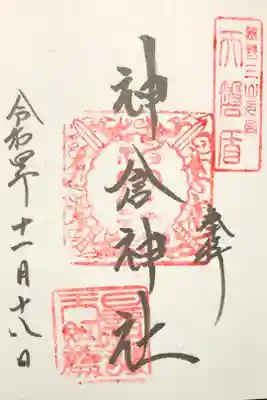 熊野三山元宮
天磐盾
奉拝
神倉神社
令和四年十一月十八日